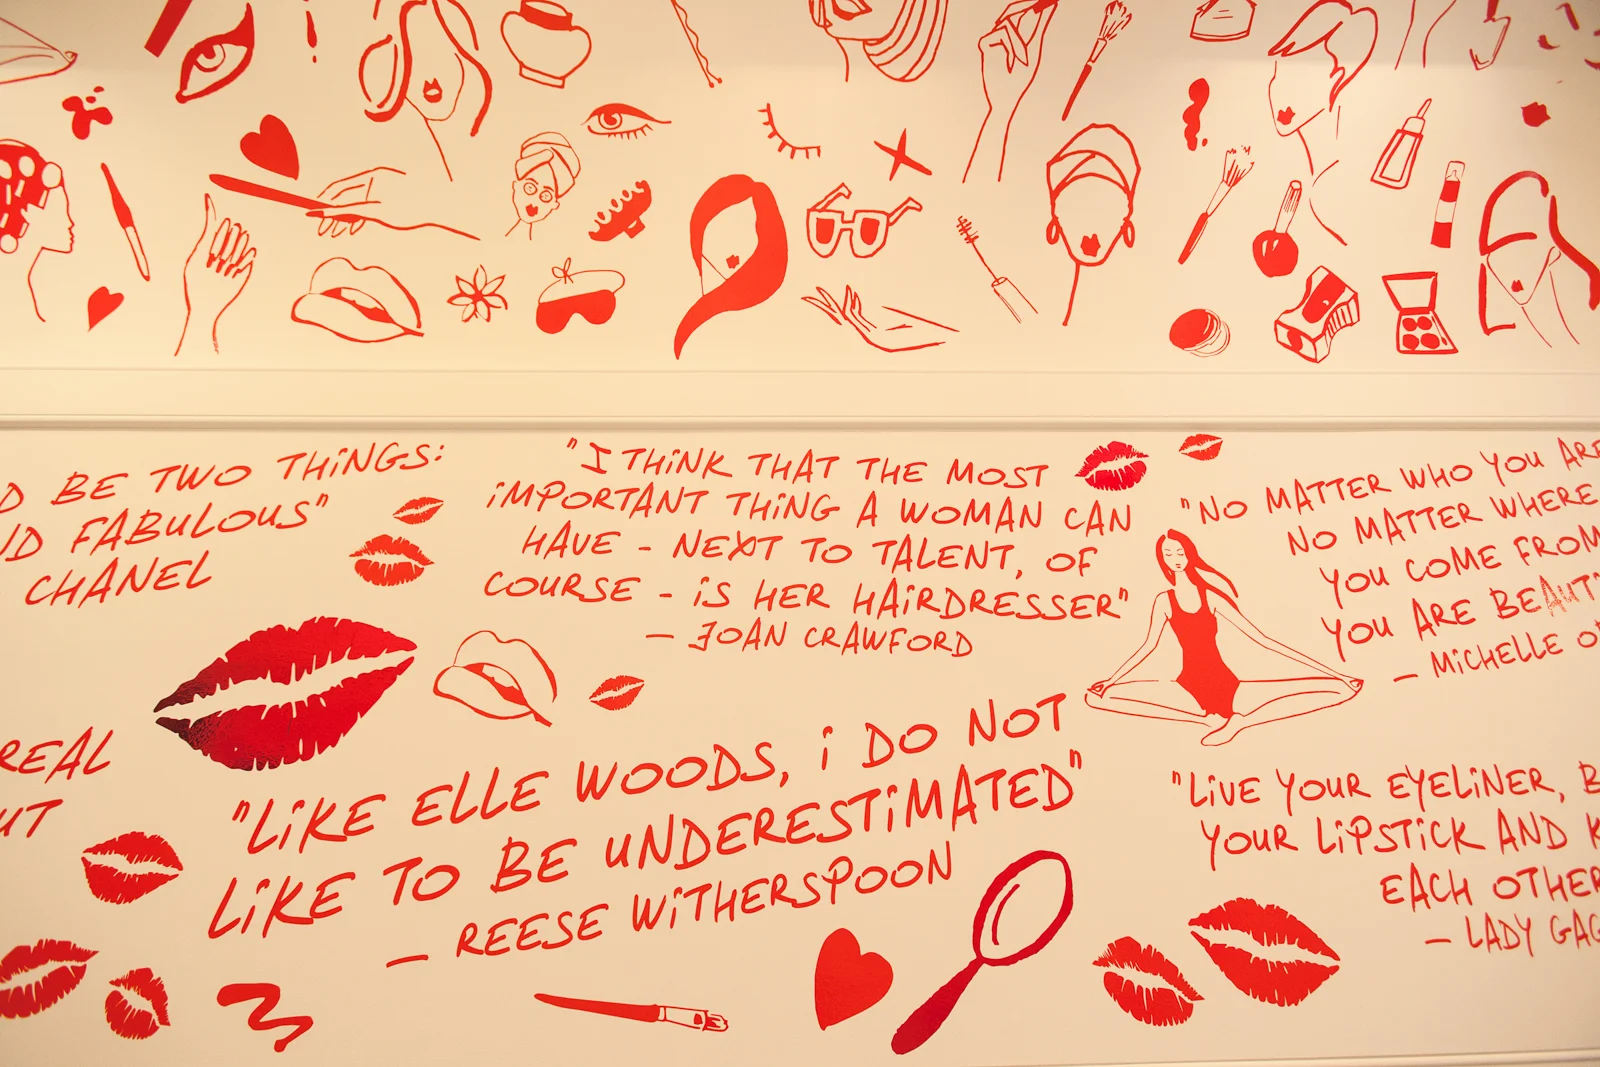 BE TWO THINGS:
FABULOUS"
CHANEL
"I THINK THAT THE MOST
IMPORTANT THING A WOMAN CAN
HAVE - NEXT TO TALENT, OF
COURSE - IS HER HAIRDRESSER"
— JOAN CRAWFORD
"NO MATTER WHO YOU ARE
NO MATTER WHERE
YOU COME FROM
YOU ARE
— MICHELLE
REAL
"LIKE ELLE WOODS, I DO NOT
LIKE TO BE UNDERESTIMATED"
— REESE WITHERSPOON
"LIVE YOUR EYELINER,
YOUR LIPSTICK AND
EACH OTHER
— LADY